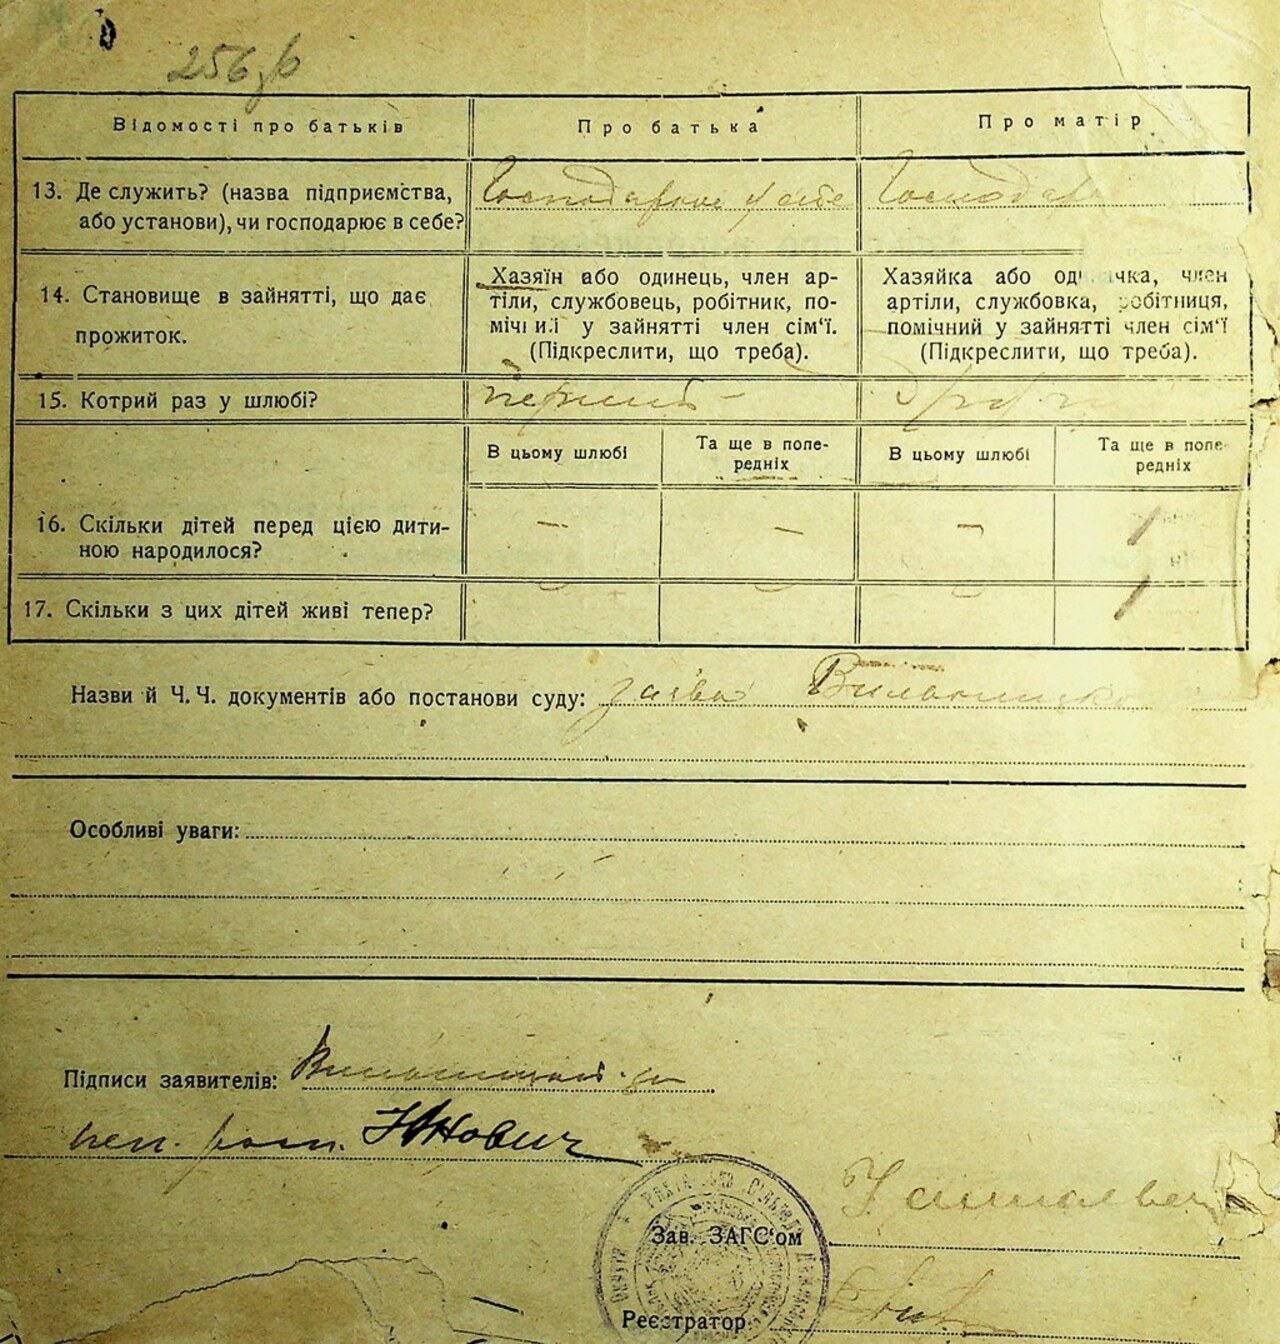 256
Відомості про батьків
Про батька
Про матір
13. Де служить? (назва підприємства,
або установи), чи господарює в себе?
Господарює у себе
Господар
14. Становище в зайнятті, що дає
прожиток.
Хазяїн або одинець, член ар-
тіли, службовець, робітник, по-
мічний у зайнятті член сім‘ї.
(Підкреслити, що треба).
Хазяйка або одиначка, член
артіли, службовка, робітниця,
помічний у зайнятті член сім‘ї
(Підкреслити, що треба).
15. Котрий раз у шлюбі?
перший
В цьому шлюбі
Та ще в попе-
редніх
В цьому шлюбі
Та ще в попе-
редніх
16. Скільки дітей перед цією дити-
ною народилося?
— — — 1
17. Скільки з цих дітей живі тепер?
1
Назви й Ч. Ч. документів або постанови суду: заява
Особливі уваги:
Підписи заявителів:
Юнович
Зав. ЗАГС‘ом
Реєстратор